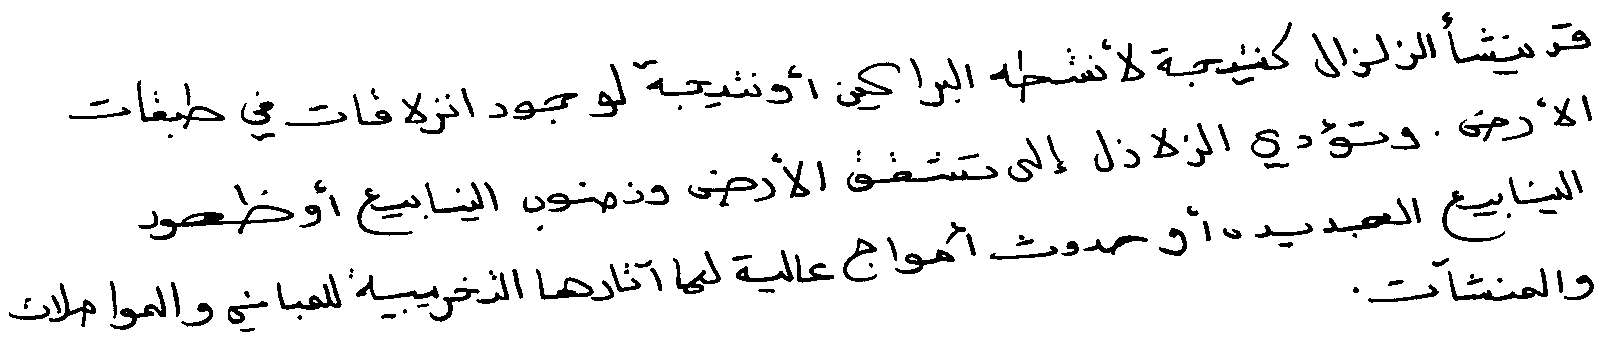 قد ينشأ الزلزال كنتيجة لأنشطه البراكين أو نتيجة لوجود انزلاقات في طبقات
الأرض . وتؤدي الزلازل إلى تشقق الأرض ونضوب الينابيع أو ظهور
الينابيع الجديده أو حدوث أمواج عالية لها آثارها التخريبية للمباني والمواصلات
والمنشآت .